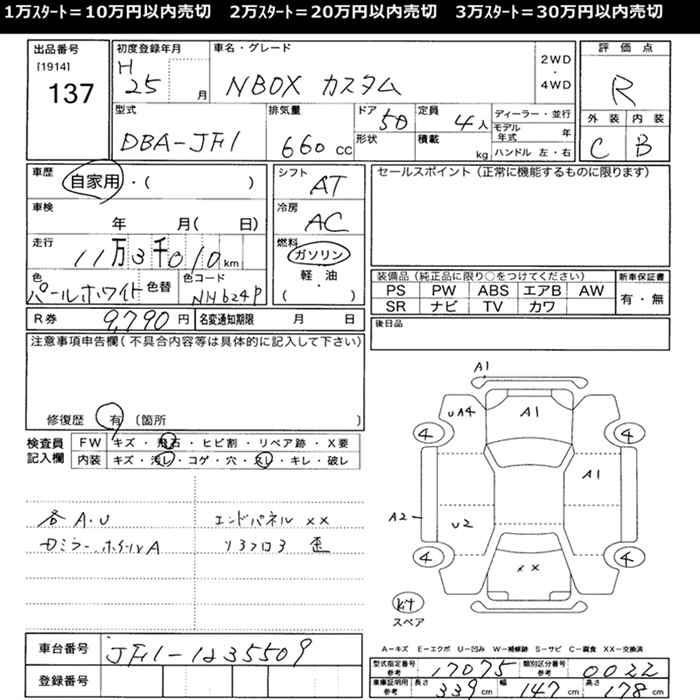 1万スタート＝10万円以内売切　2万スタート＝20万円以内売切　3万スタート＝30万円以内売切
出品番号
[1914]
137
初度登録年月
H
25
月
車名・グレード
NBOX カスタム
2WD
・
4WD
評価点
R
外装
内装
C
B
型式
DBA-JF1
排気量
660 cc
ドア
5D
形状
定員
4人
積載
kg
ディーラー・並行
モデル年式
年
ハンドル 左・右
車歴
自家用・( )
車検
年 月( 日)
走行
11万3千010km
色
パールホワイト
色替
色コード
NH624P
シフト
AT
冷房
AC
燃料
ガソリン
軽・油
( )
セールスポイント（正常に機能するものに限ります）
装備品（純正品に限り○をつけてください）
PS PW ABS エアB AW
SR ナビ TV カワ
新車保証書
有・無
後日品
R券
9,790円
名変通知期限
月 日
注意事項申告欄（不具合内容等は具体的に記入して下さい）
修復歴 有 〔箇所 〕
検査員
記入欄
FW キズ・飛石・ヒビ割・リペア跡・X要
内装 キズ・汚レ・コゲ・穴・スレ・キレ・破レ
各A・U
エンドパネル XX
ホイールA
歪
A1
UA4
A1
4
4
A1
A2
U2
4
4
XX
kit
スペア
A－キズ E－エクボ U－凹み W－補修跡 S－サビ C－腐食 XX－交換済
車台番号
JF1-1235509
登録番号
型式指定番号
参考
17075
類別区分番号
参考
0022
車庫証明用
参考
長さ
339cm
幅
147cm
高さ
178cm